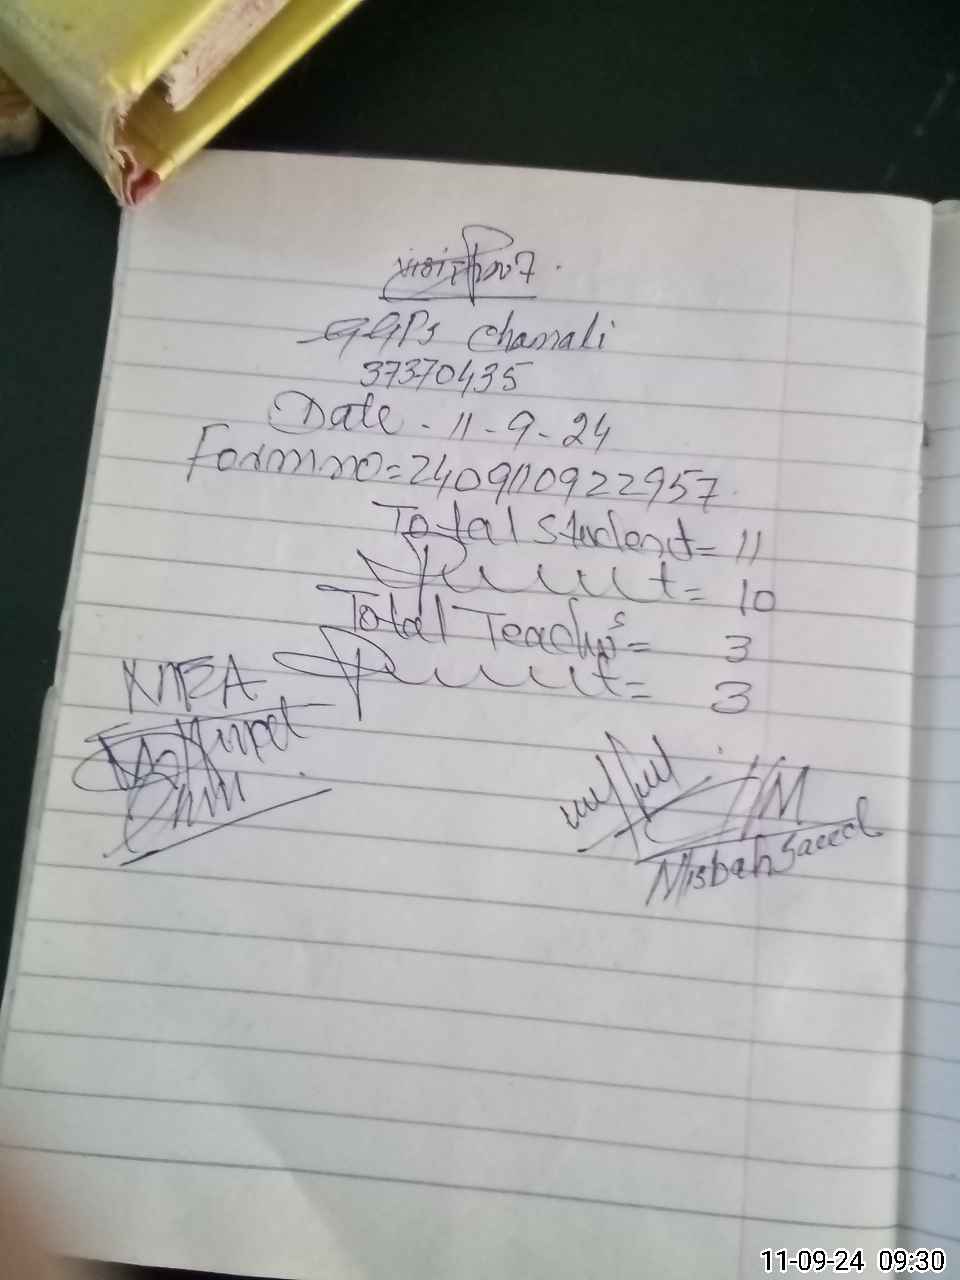 GGPS Chamali
37370435
Date - 11-9-24
Formno=240910922957
Total Student = 11
Present = 10
Total Teachers = 3
Present = 3
Misbah Saeed
11-09-24 09:30